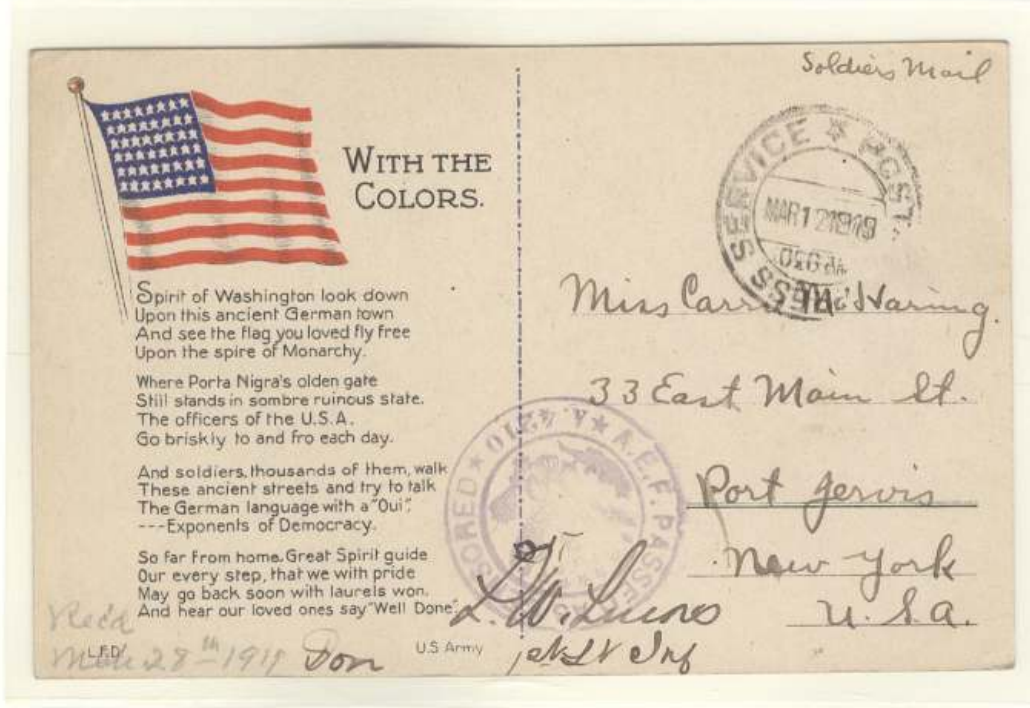 Soldiers Mail
WITH THE
COLORS.
Spirit of Washington look down
Upon this ancient German town
And see the flag you loved fly free
Upon the spire of Monarchy.
Where Porta Nigra's olden gate
Still stands in sombre ruinous state.
The officers of the U.S.A.
Go briskly to and fro each day.
And soldiers, thousands of them, walk
These ancient streets and try to talk
The German language with a "Oui".
---Exponents of Democracy.
So far from home, Great Spirit guide
Our every step, that we with pride
May go back soon with laurels won.
And hear our loved ones say "Well Done".
L.F.D.
U.S Army
Rec'd
Mch 28th 1919
Don
POSTAL EXPRESS SERVICE
MAR 12 1919
Miss Haring.
33 East Main St.
Port Jervis
New York
U.S.A.
A.E.F. PASSED AS CENSORED A.4210
1st Lt Inf